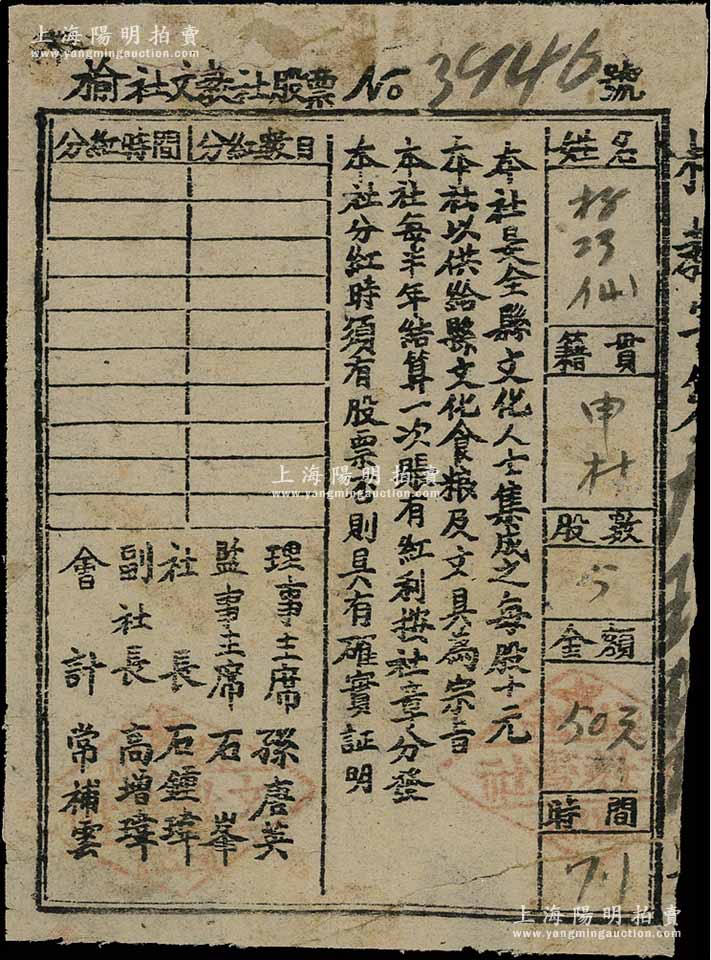 上海陽明拍賣
www.yangmingauction.com
榆社文義社股票 No 3946 號
姓名
籍貫
申村
股數
5
金額
50元
時間
7.1
本社是全縣文化人士集成之每股十元
本社以供給縣文化食粮及文具為宗旨
本社每半年結算一次賬有紅利按社章分發
本社分紅時須有股票否則具有確實証明
分紅數目
分紅時間
理事主席 孫唐英
監事主席 石峯
社長 石鍾瑋
副社長 高增璋
會計 常補雲
上海陽明拍賣
www.yangmingauction.com
上海陽明拍賣
www.yangmingauction.com